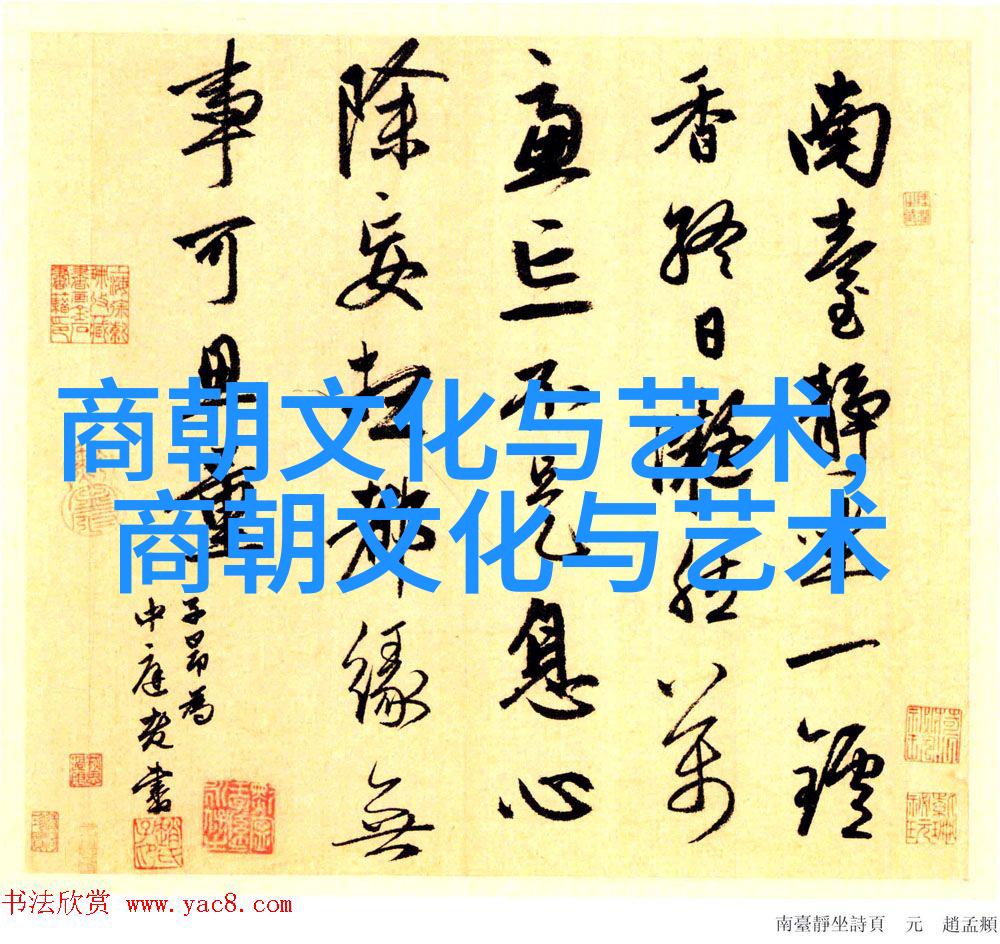 南臺靜坐一鑪
香終日凝然萬
慮亡不是息心
除妄想都緣無
事可思量
子昂為
中庭老書
商朝文化与艺术,
商朝文化与艺术
书法欣赏 www.yac8.com
南臺靜坐詩頁 元 趙孟頫